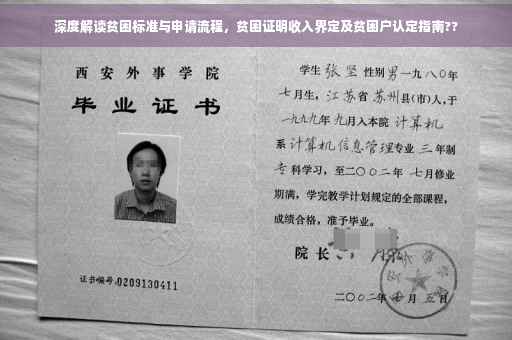 深度解读贫困标准与申请流程，贫困证明收入界定及贫困户认定指南??
西安外事学院
毕业证书
证书编号:0209130411
学生 张坚 性别 男 一九八〇年
七月生，江苏省 苏州县(市)人，于
一九九九年 九月入本院 计算机
系 计算机信息管理专业 三 年制
专科学习，至二〇〇二年 七月修业
期满，学完教学计划规定的全部课程，
成绩合格，准予毕业。
院长
二〇〇二年 月 五日